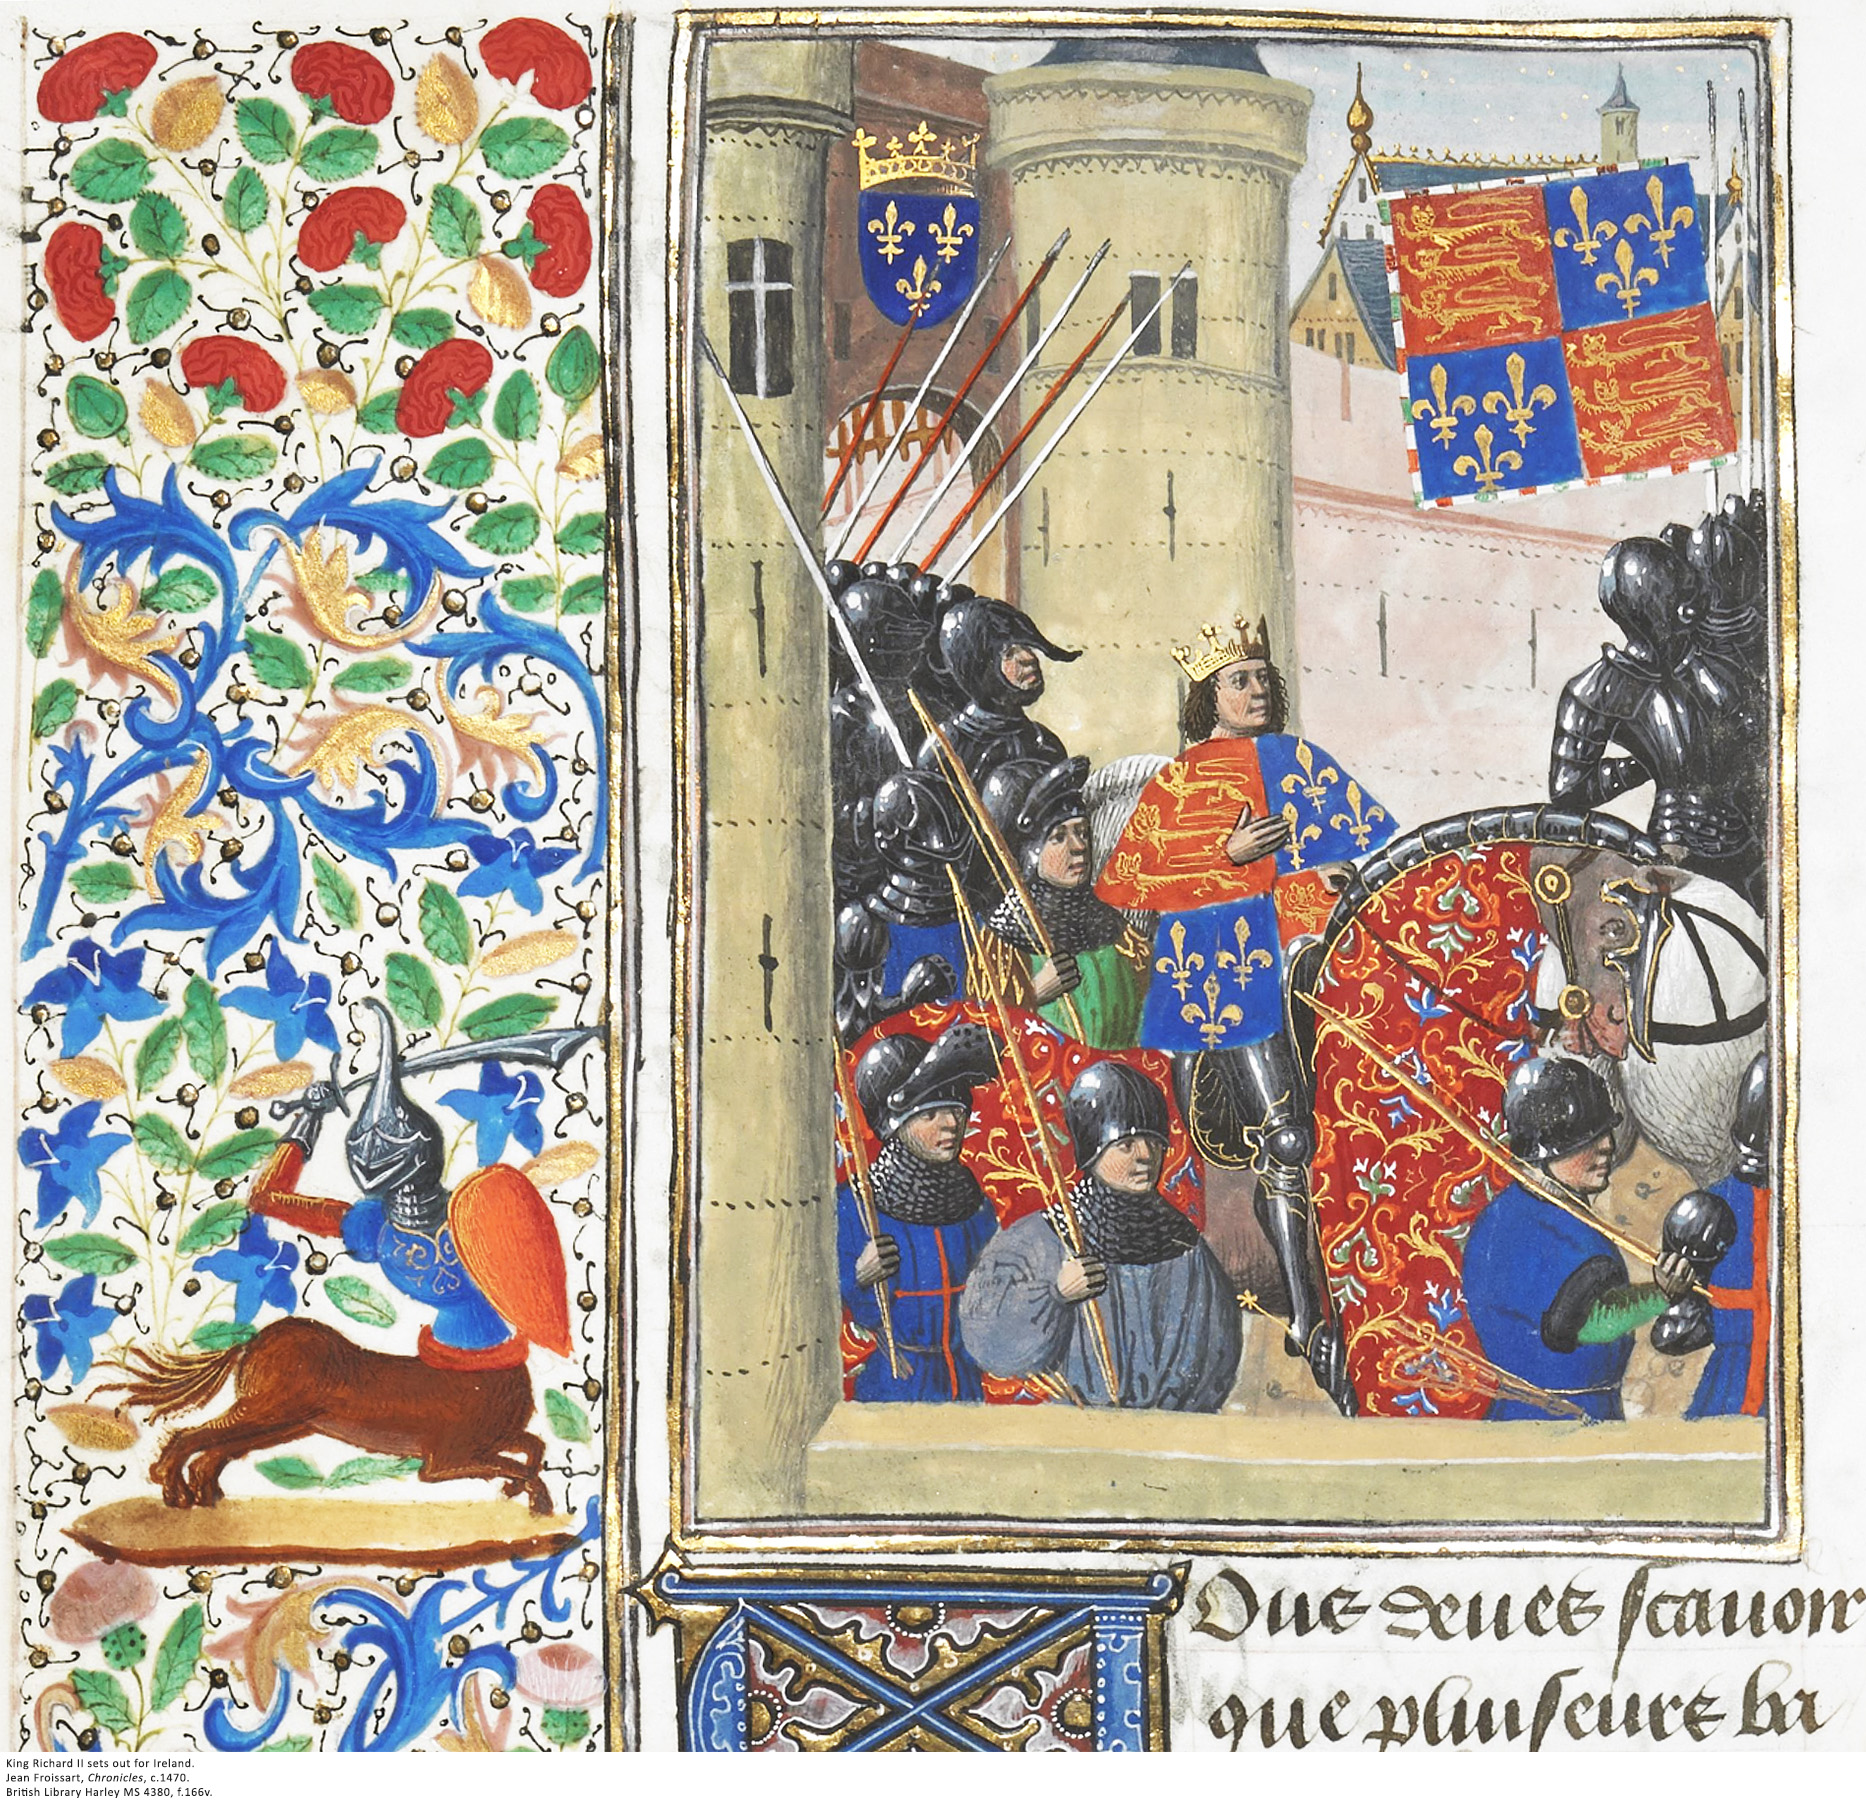 Ous deues scauoir
que pluiseurs ba
King Richard II sets out for Ireland.
Jean Froissart, Chronicles, c.1470.
British Library Harley MS 4380, f.166v.